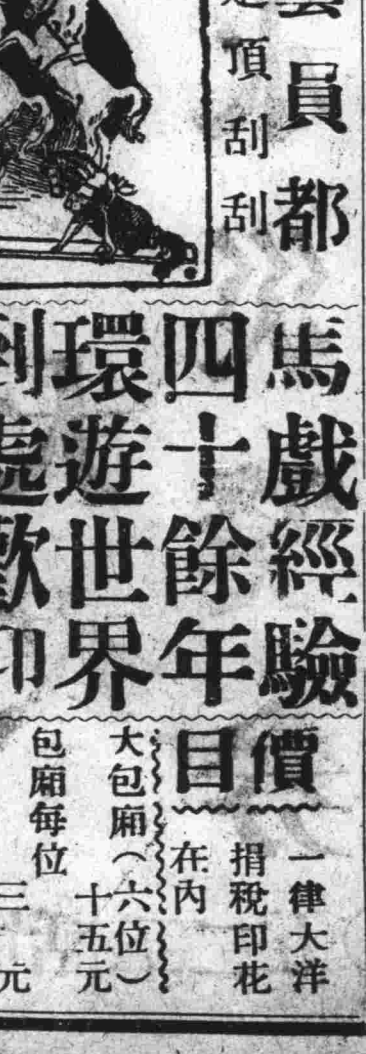 員都
頂刮刮
馬戲經驗
四十餘年
環遊世界
到處歡
價目
一律大洋
捐稅印花
在內
大包廂(六位)
十五元
包廂每位
三元